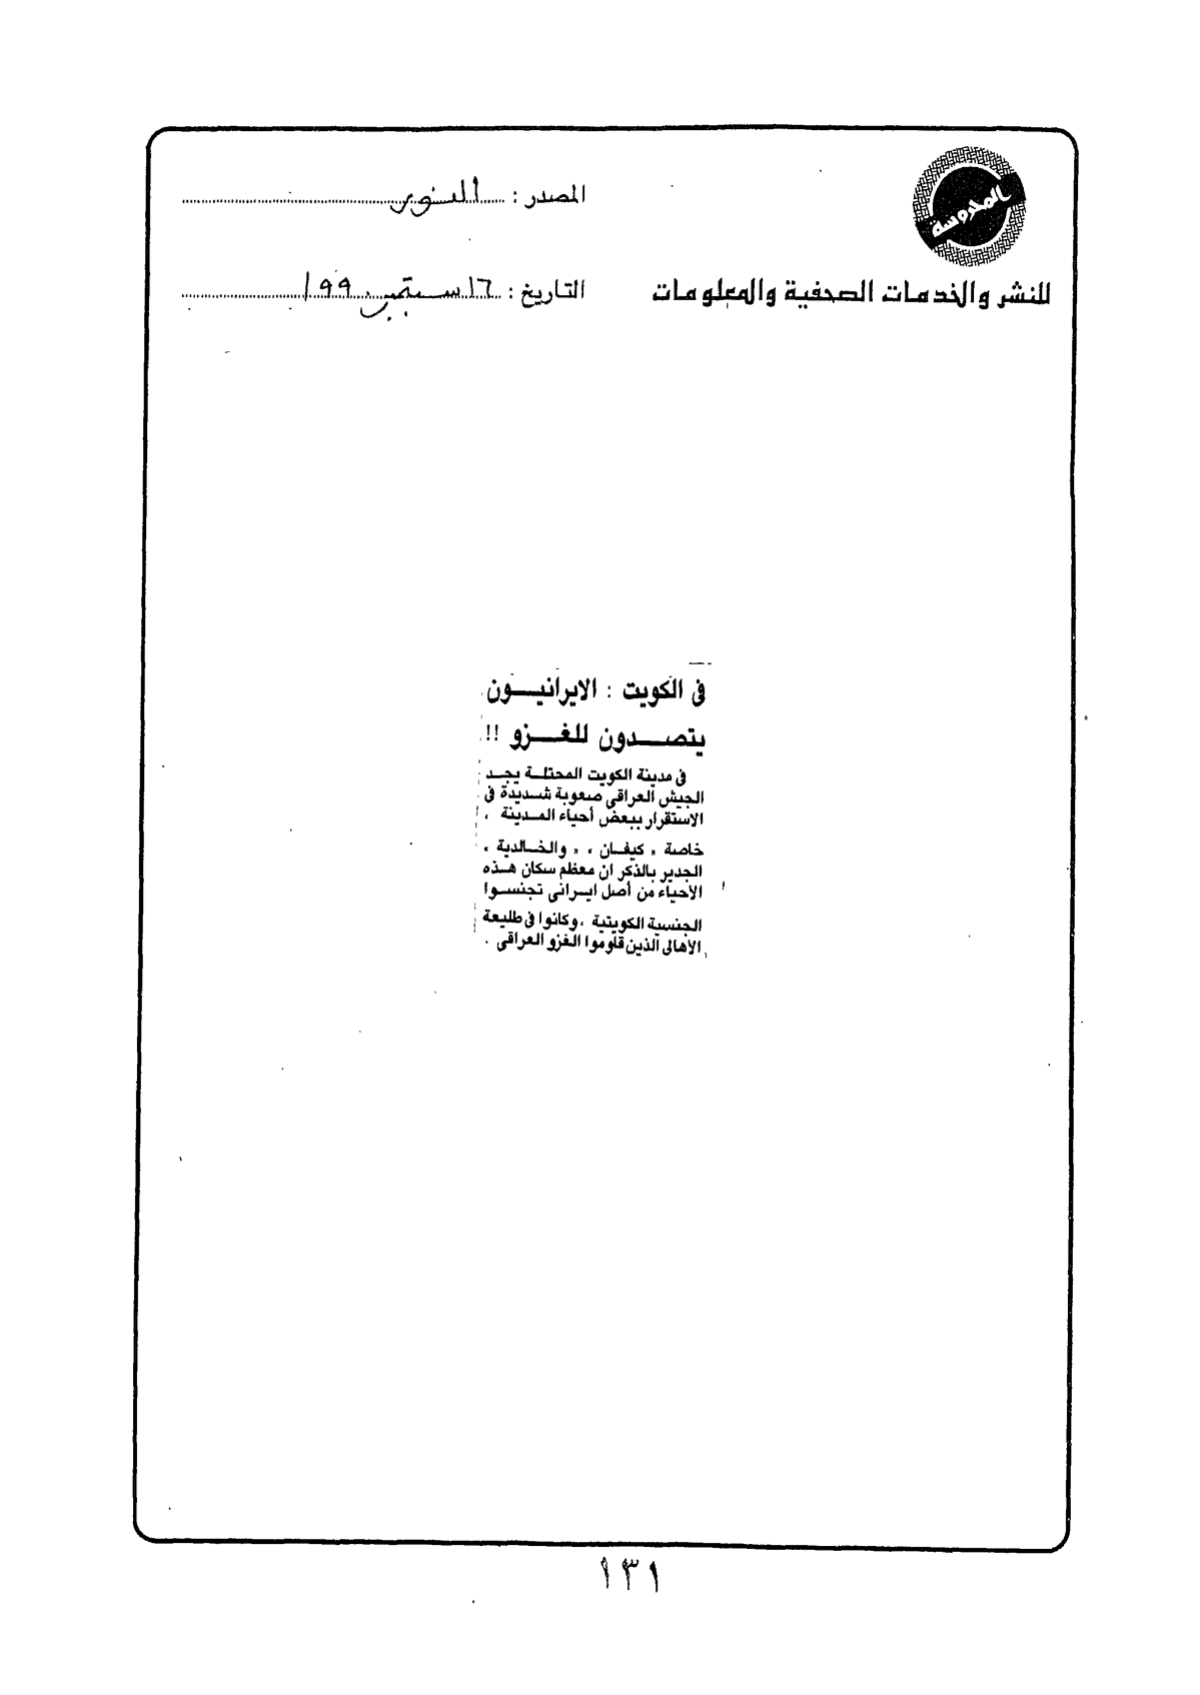 المحروسة
للنشر والخدمات الصحفية والمعلومات
المصدر : النور
التاريخ : ١٦ سبتمبر ١٩٩٠
فى الكويت : الايرانيــون
يتصــدون للغــزو !!
فى مدينة الكويت المحتلــة يجــد
الجيش العراقى صعوبة شــديدة فى
الاستقرار ببعض أحياء المــدينة ،
خاصة « كيفــان » ، « والخــالدية »
الجدير بالذكر ان معظم سكان هــذه
الأحياء من أصل ايــرانى تجنســوا
الجنسية الكويتية ، وكانوا فى طليعة
الأهالى الذين قاوموا الغزو العراقى .
١٣١